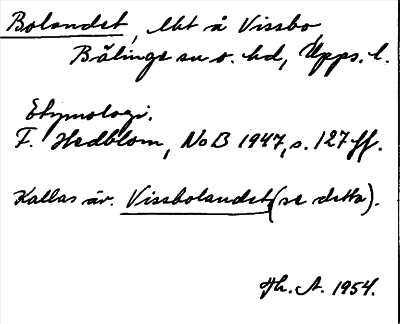 Bolandet, lkt å Vissbo,
Bälinge sn o. hd, Upps. l.
Etymologi.
F. Hedblom, NoB 1947, s. 127 ff.
Kallas äv. Vissbolandet (se detta).
Th. A. 1954.